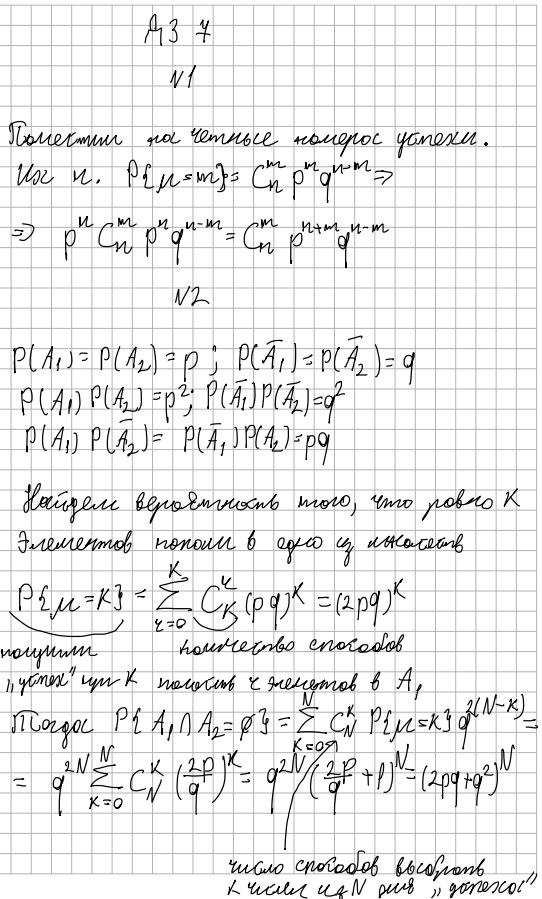 ДЗ 7
N1
Пометим на четные номера успехи.
Их n. P{μ=m} = C_n^m p^n q^{n-m} =>
=> p^n C_n^m p^n q^{n-m} = C_n^m p^{n+m} q^{n-m}
N2
P(A₁) = P(A₂) = p ; P(Ā₁) = P(Ā₂) = q
P(A₁) P(A₂) = p²; P(Ā₁)P(Ā₂) = q²
P(A₁) P(Ā₂) = P(Ā₁)P(A₂) = pq
Найдем вероятность того, что ровно K
элементов попали в одно из множеств
P{μ=K} = ∑_{r=0}^{K} C_K^r (pq)^K = (2pq)^K
получили количество способов
„успех" при K попасть r элементов в A₁
Тогда P{A₁∩A₂=∅} = ∑_{K=0}^{N} C_N^K P{μ=K} q^{2(N-K)} =
= q^{2N} ∑_{K=0}^{N} C_N^K (2p/q)^K = q^{2N} (2p/q + 1)^N = (2pq+q²)^N
число способов выбрать
K чисел из N для „успеха"